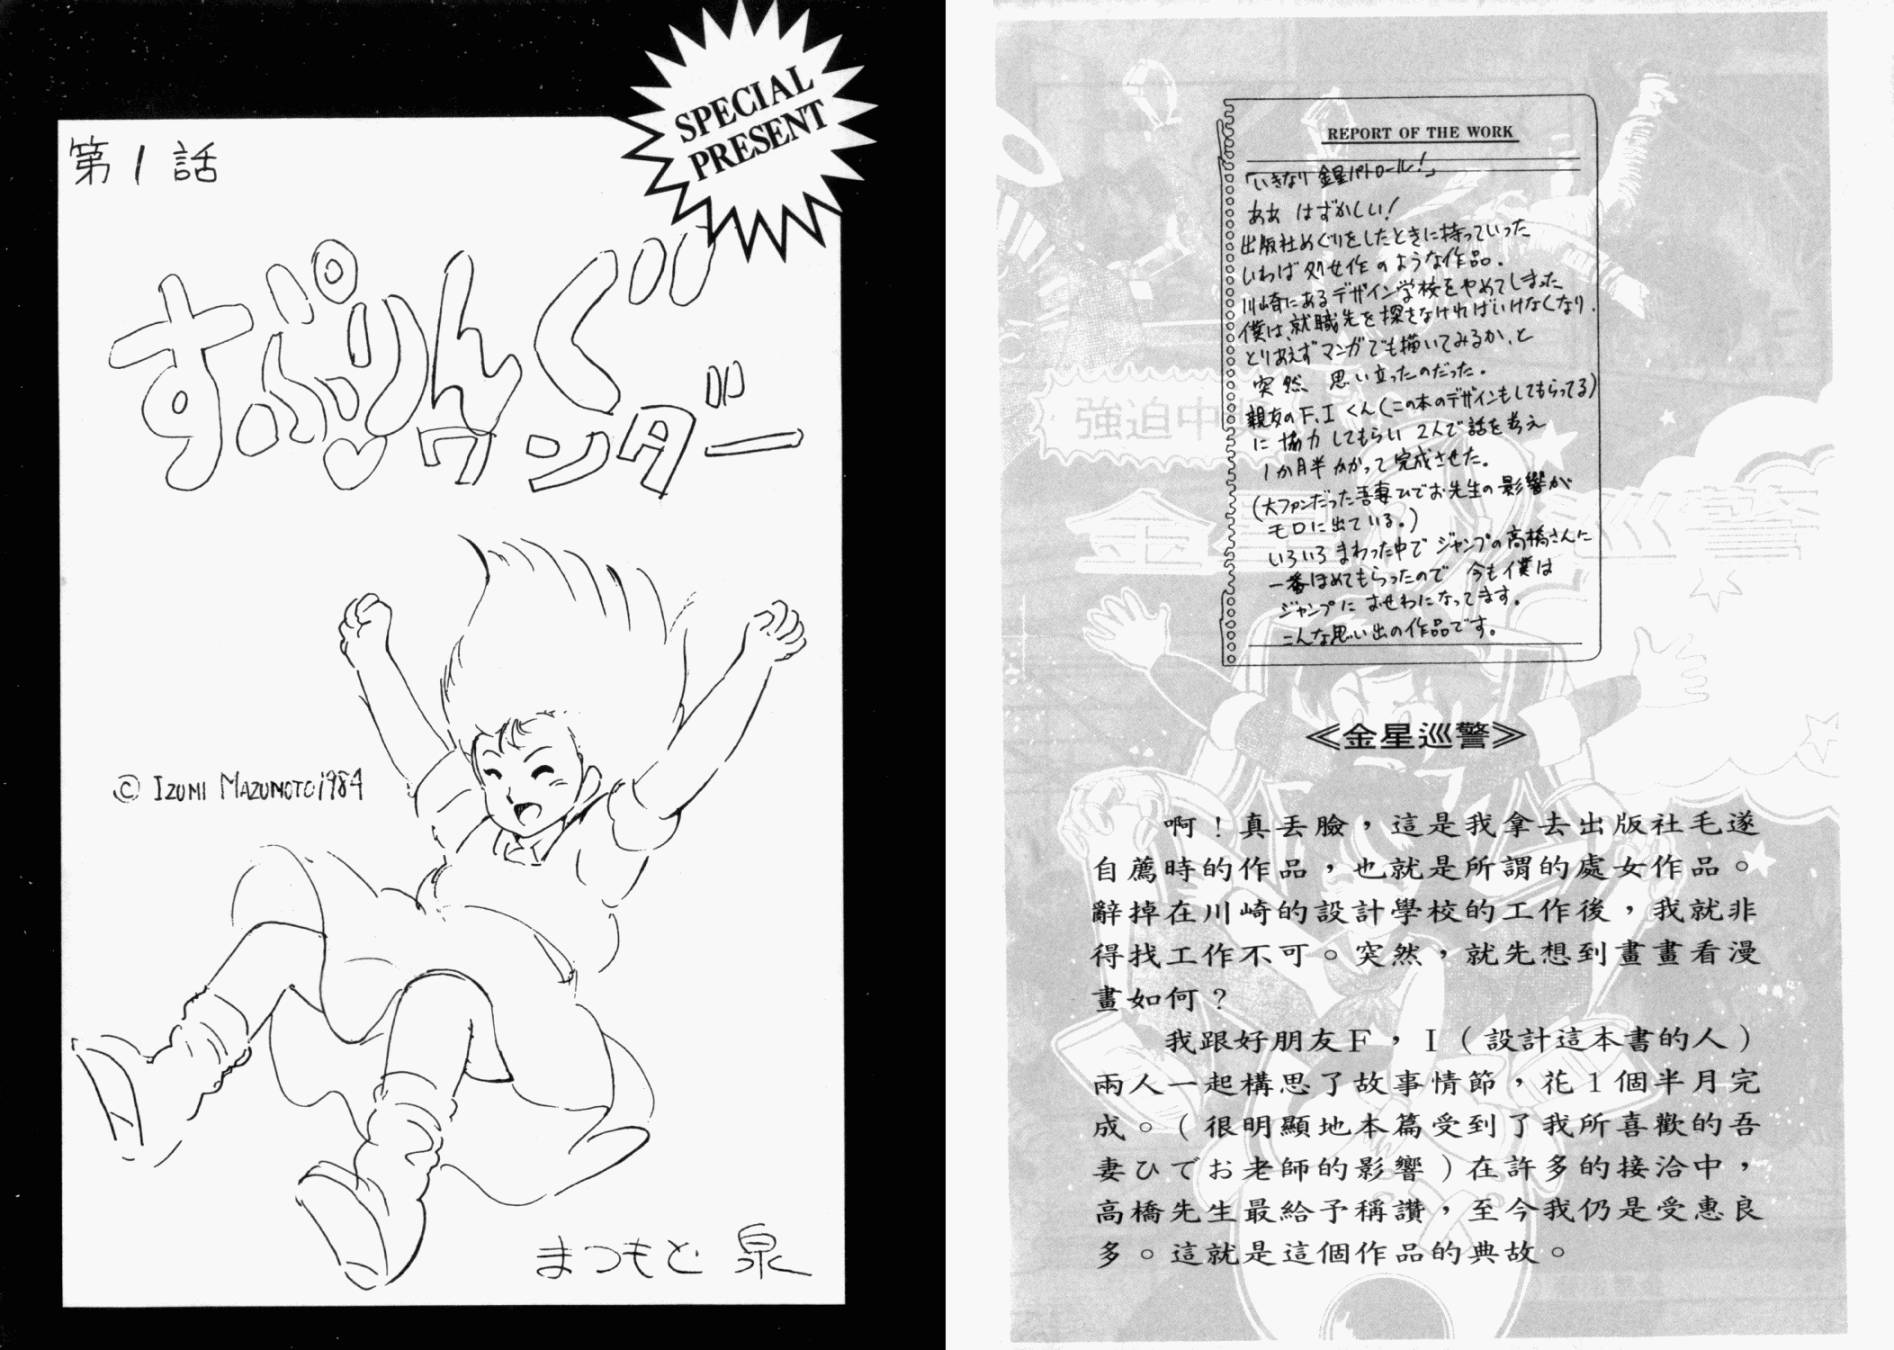 SPECIAL
PRESENT
第1話
すぷりんぐ
ワンダー
© IZUMI MAZUMOTO 1984
まつもと 泉
REPORT OF THE WORK
「いきなり 金星パトロール!」
ああ はずかしい!
出版社めぐりをしたときに持っていった
いわば 処女作 のような作品.
川崎にあるデザイン学校をやめてしまった
僕は、就職先を探さなければいけなくなり.
とりあえずマンガでも描いてみるか、と
突然、思い立ったのだった.
親友のF.Iくん(この本のデザインもしてもらってる)
に協力してもらい 2人で話を考え
1か月半かかって完成させた。
(大ファンだった吾妻ひでお先生の影響が
モロに出ている。)
いろいろまわった中でジャンプの高橋さんに
一番ほめてもらったので 今も僕は
ジャンプに おせわになってます。
こんな思い出の作品です。
強迫中
金 巡警
≪金星巡警≫
啊!真丟臉,這是我拿去出版社毛遂
自薦時的作品,也就是所謂的處女作品。
辭掉在川崎的設計學校的工作後,我就非
得找工作不可。突然,就先想到畫畫看漫
畫如何?
我跟好朋友F,I(設計這本書的人)
兩人一起構思了故事情節,花1個半月完
成。(很明顯地本篇受到了我所喜歡的吾
妻ひでお老師的影響)在許多的接洽中,
高橋先生最給予稱讚,至今我仍是受惠良
多。這就是這個作品的典故。